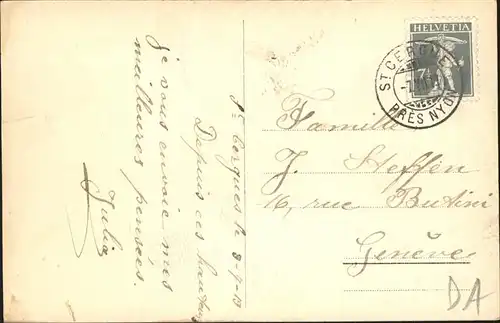 St Cergues le 8-9-18
Depuis ces hauteurs
je vous envoie mes
meilleures pensées.
Julia
HELVETIA
7½
ST CERGUE
PRÈS NYON
Famille
J. Steffen
16, rue Butini
Genève
DA